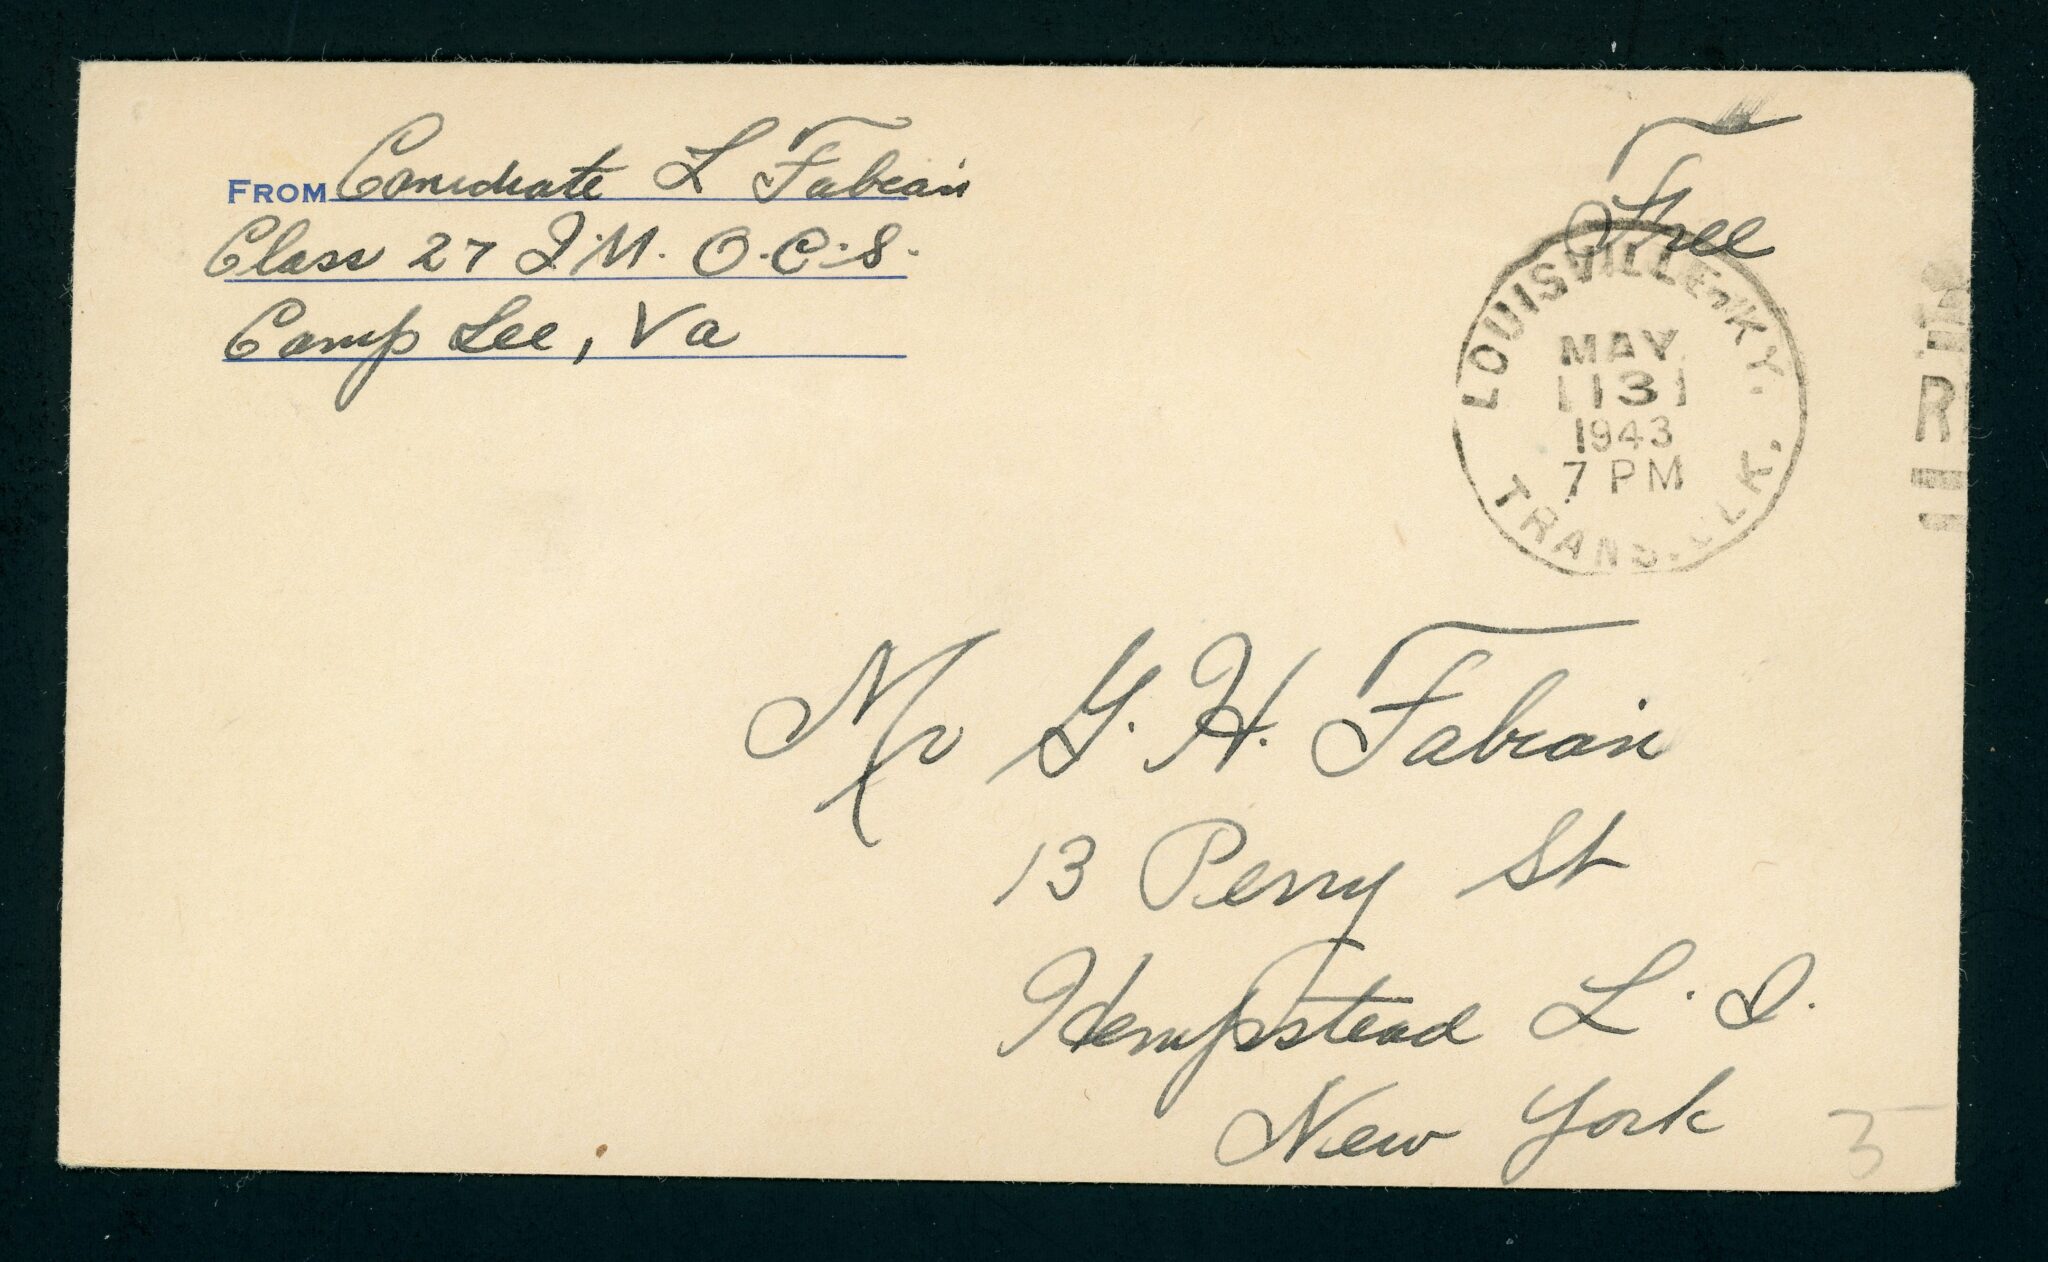 FROM Candidate L Fabian
Class 27 Q.M. O.C.S.
Camp Lee, Va
Free
LOUISVILLE, KY.
MAY
13
1943
7 PM
TRANS. CLK.
R
Mr G. H. Fabian
13 Perry St
Hempstead L. I.
New York
3